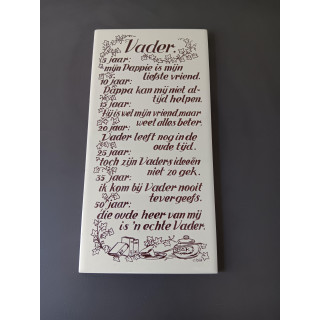 Vader.
5 jaar:
mijn Pappie is mijn
liefste vriend.
10 jaar:
Pappa kan mij niet al-
tijd helpen.
15 jaar:
hij is wel mijn vriend, maar
weet alles beter.
20 jaar:
Vader leeft nog in de
oude tijd.
25 jaar:
toch zijn Vaders ideeën
niet zo gek.
35 jaar:
ik kom bij Vader nooit
tevergeefs.
50 jaar:
die oude heer van mij
is 'n echte Vader.